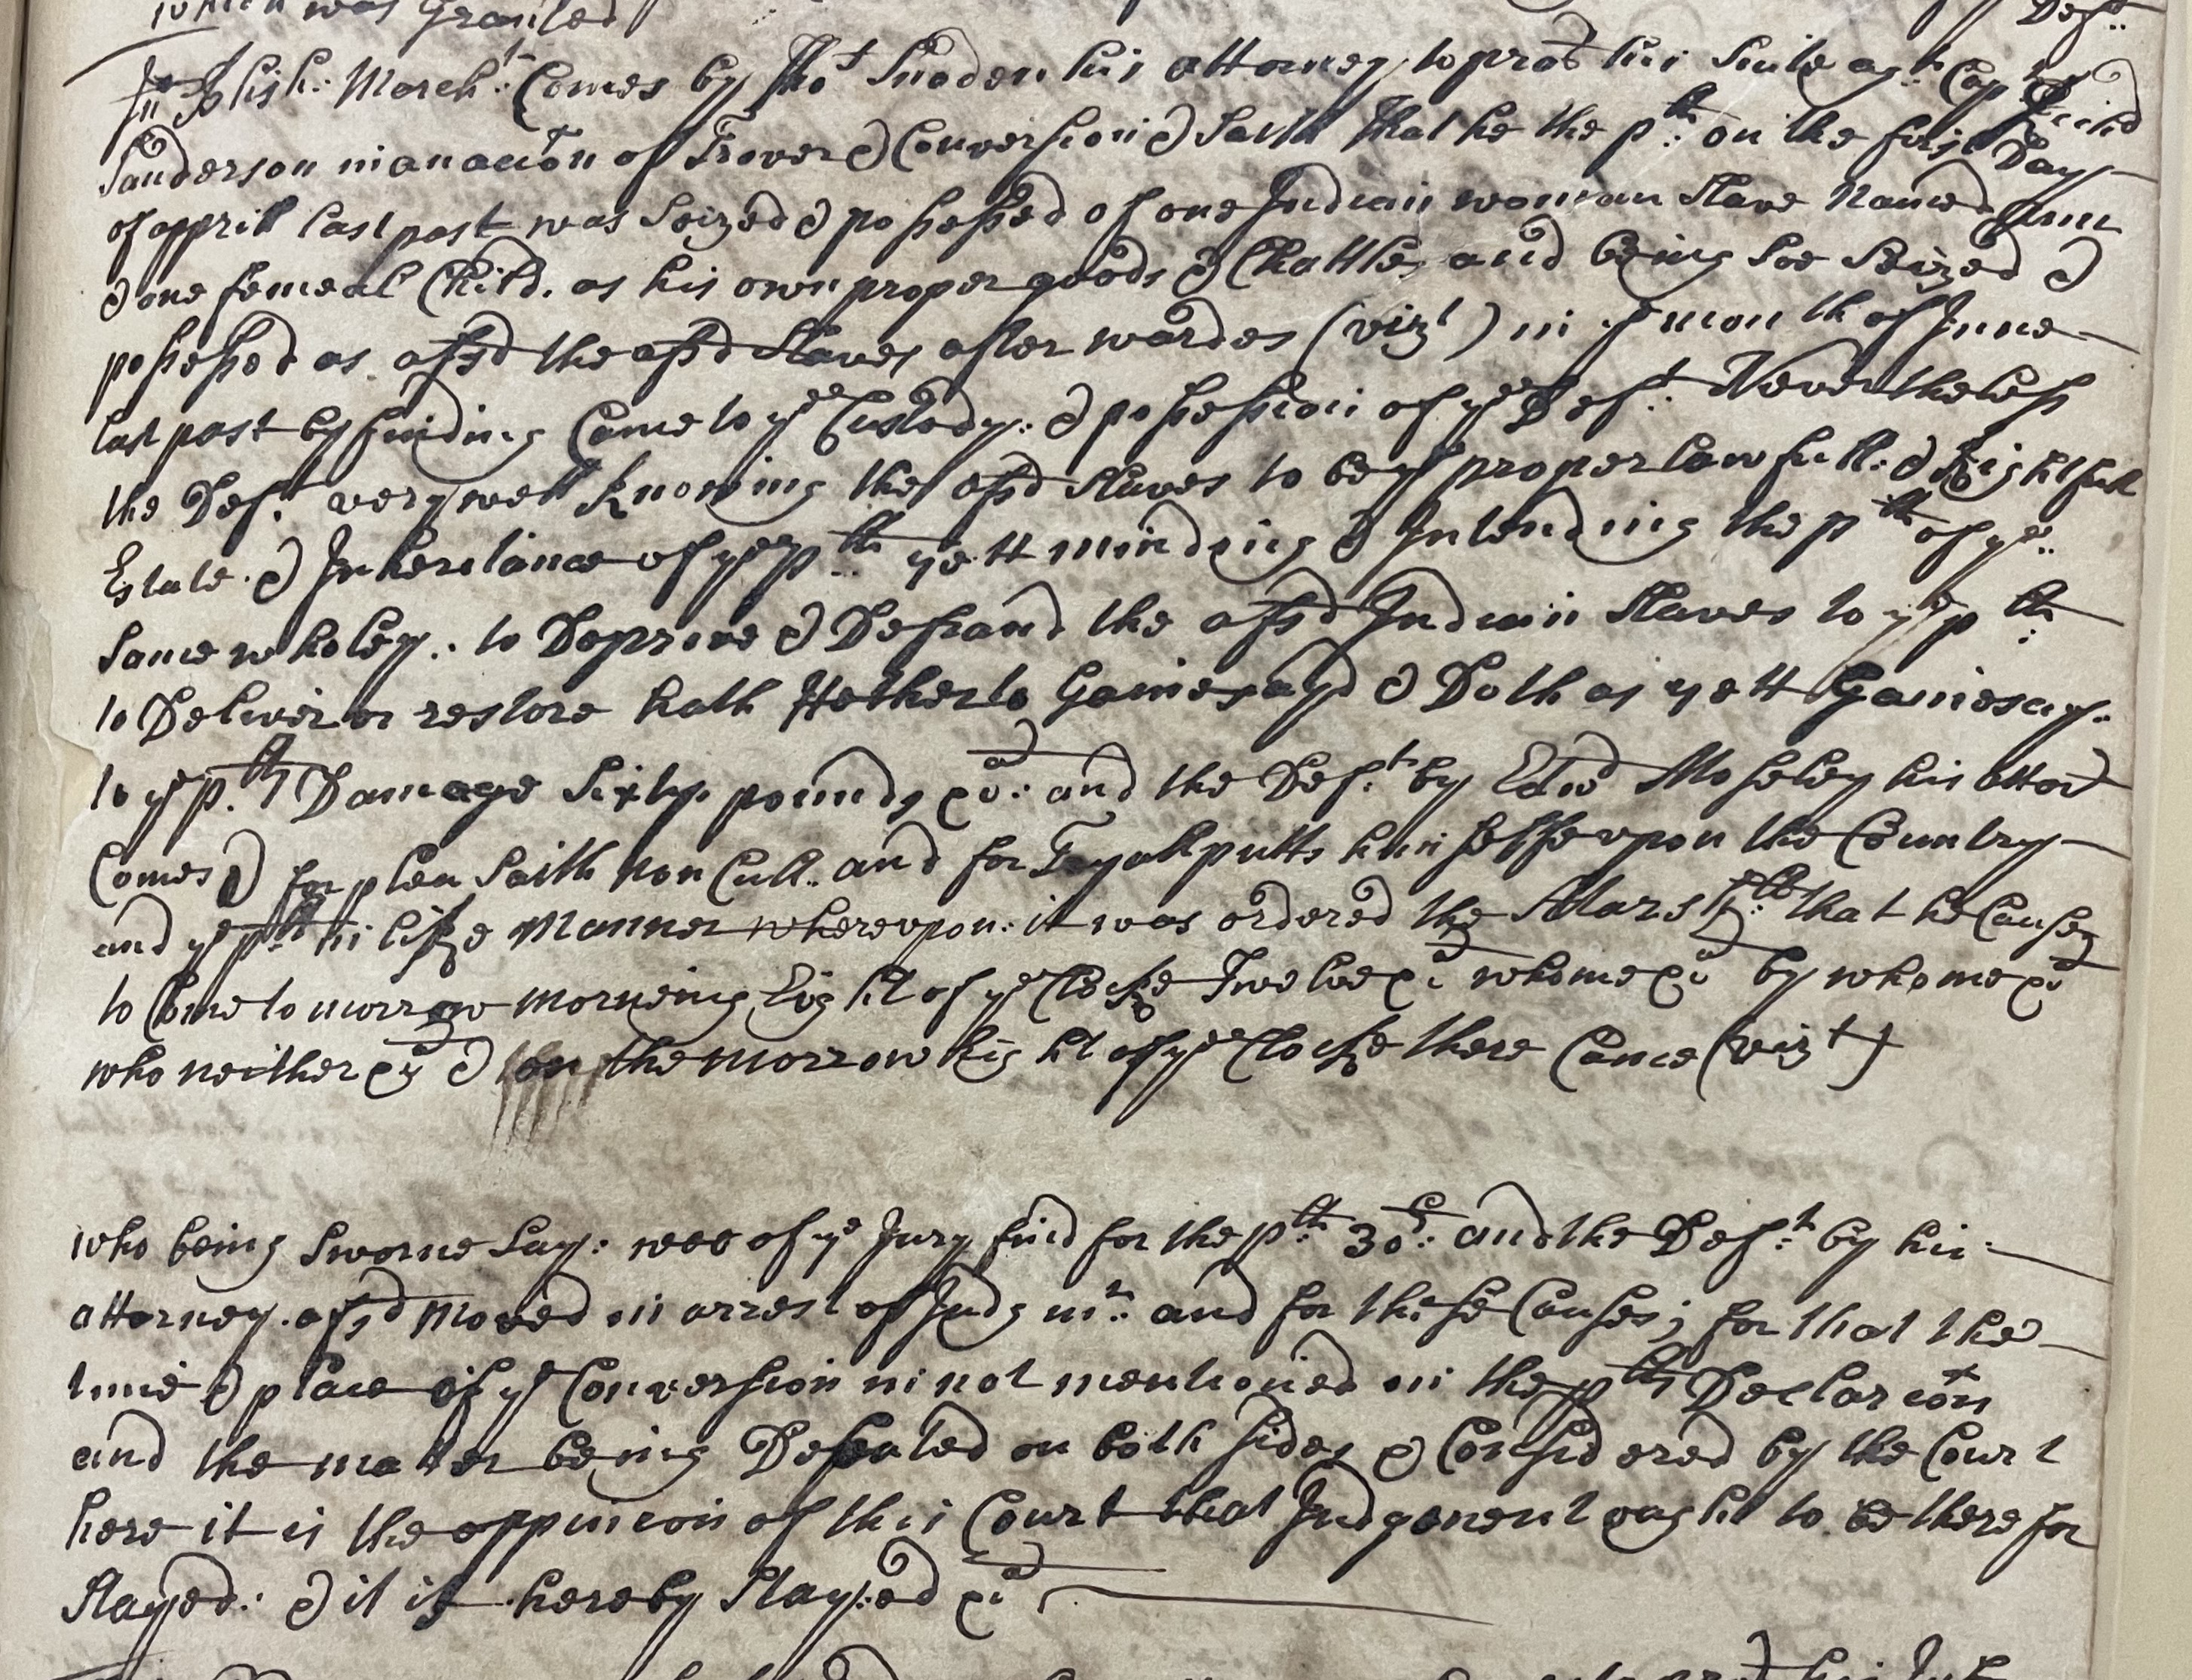 which was Granted
Deft:
Jno Plish: Marcht: Comes by Tho: Snoden his attorney to pros his Suite agt: Cap Richd
Sanderson in an accon of Trover & Conversion & Saith That he the plt: on the first Day
of Aprill last past was Seized & possessed of one Indian woman Slave Named Ann
& one femeal Child. as his own proper goods & Chattles and being Soe Seized &
possessed as afsd the afsd Slaves after wardes (vizt) in ye month of June
last past by finding Came to ye Custody: & possession of ye Deft: Never theless
the Deft: very well Knowing the afsd Slaves to be ye proper lawfull: & Rightfull
Estate. & Inheritance of ye plt: yett minding & Intending the plt of ye:
Same wholey: to Deprive & Defraud the afsd Indian Slaves to ye plt:
to Deliver or restore hath Hetherto Gainesayd & Doth as yett Gainesay:
to ye plts Damage Sixty pounds &ca: and the Deft: by Edwd Moseley his attor
Comes & for plea Saith Non Cull: and for Tryall putts him selfe upon the Country
and ye plt: in like Manner whereupon: it was ordered the Marsll: that he Cause
to Come to morrow morneing Eight of ye Clocke Twelve &c whome &c by whome &c
who neither &c & on the morrow Eight of ye Clocke there Came (vizt)
who being Sworne Say: wee of ye Jury find for the plt: 30s: and the Deft: by his
attorney. afsd moved in arrest of Judgmt: and for these Causes; for that the
time & place of ye Conversion is not mentioned in the plts Declaracon
and the matter being Debated on both Sides & Considered by the Court
here it is the oppinion of this Court that Judgement ought to be there for
Stayed: & it is hereby Stayed &ca